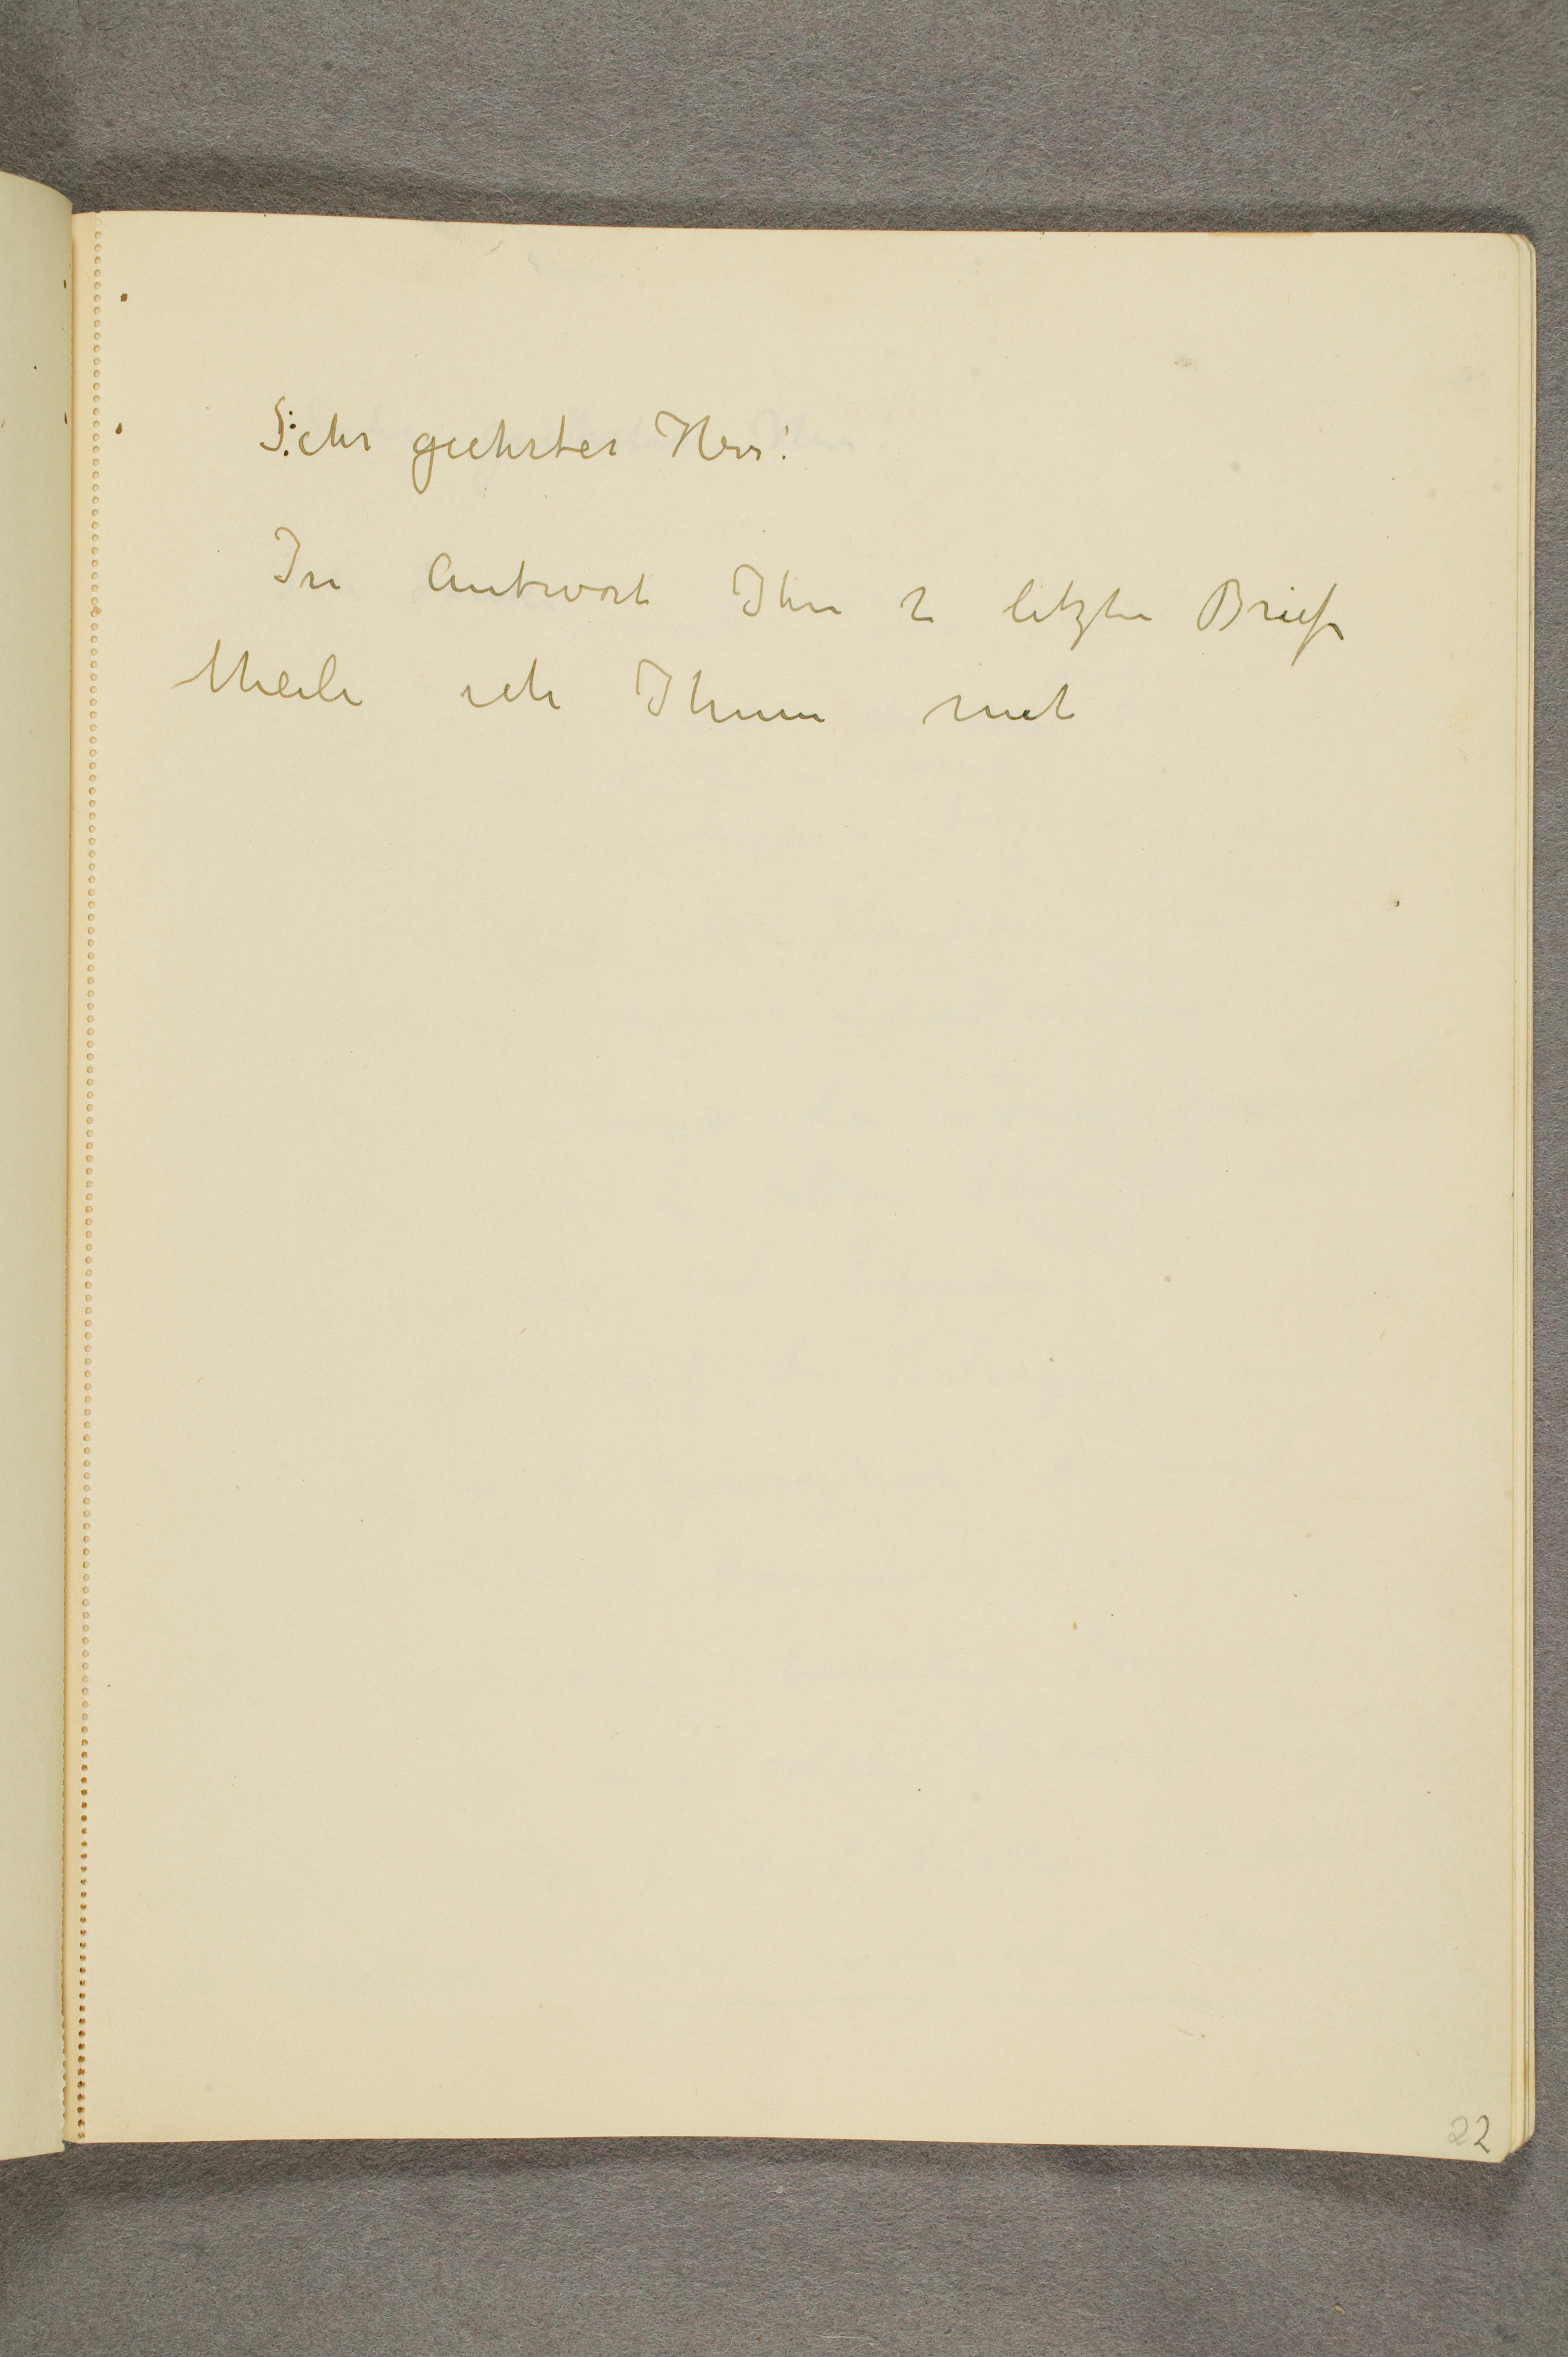 Sehr geehrter Herr!
In Antwort Ihre 2 letzte Briefe
theile ich Ihnen mit
22